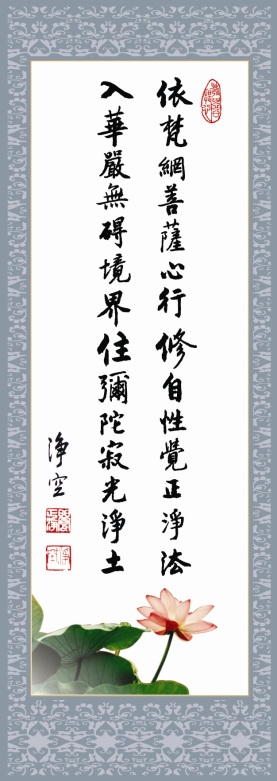 依梵網菩薩心行修自性覺正淨法
入華嚴無碍境界住彌陀寂光淨土
淨空